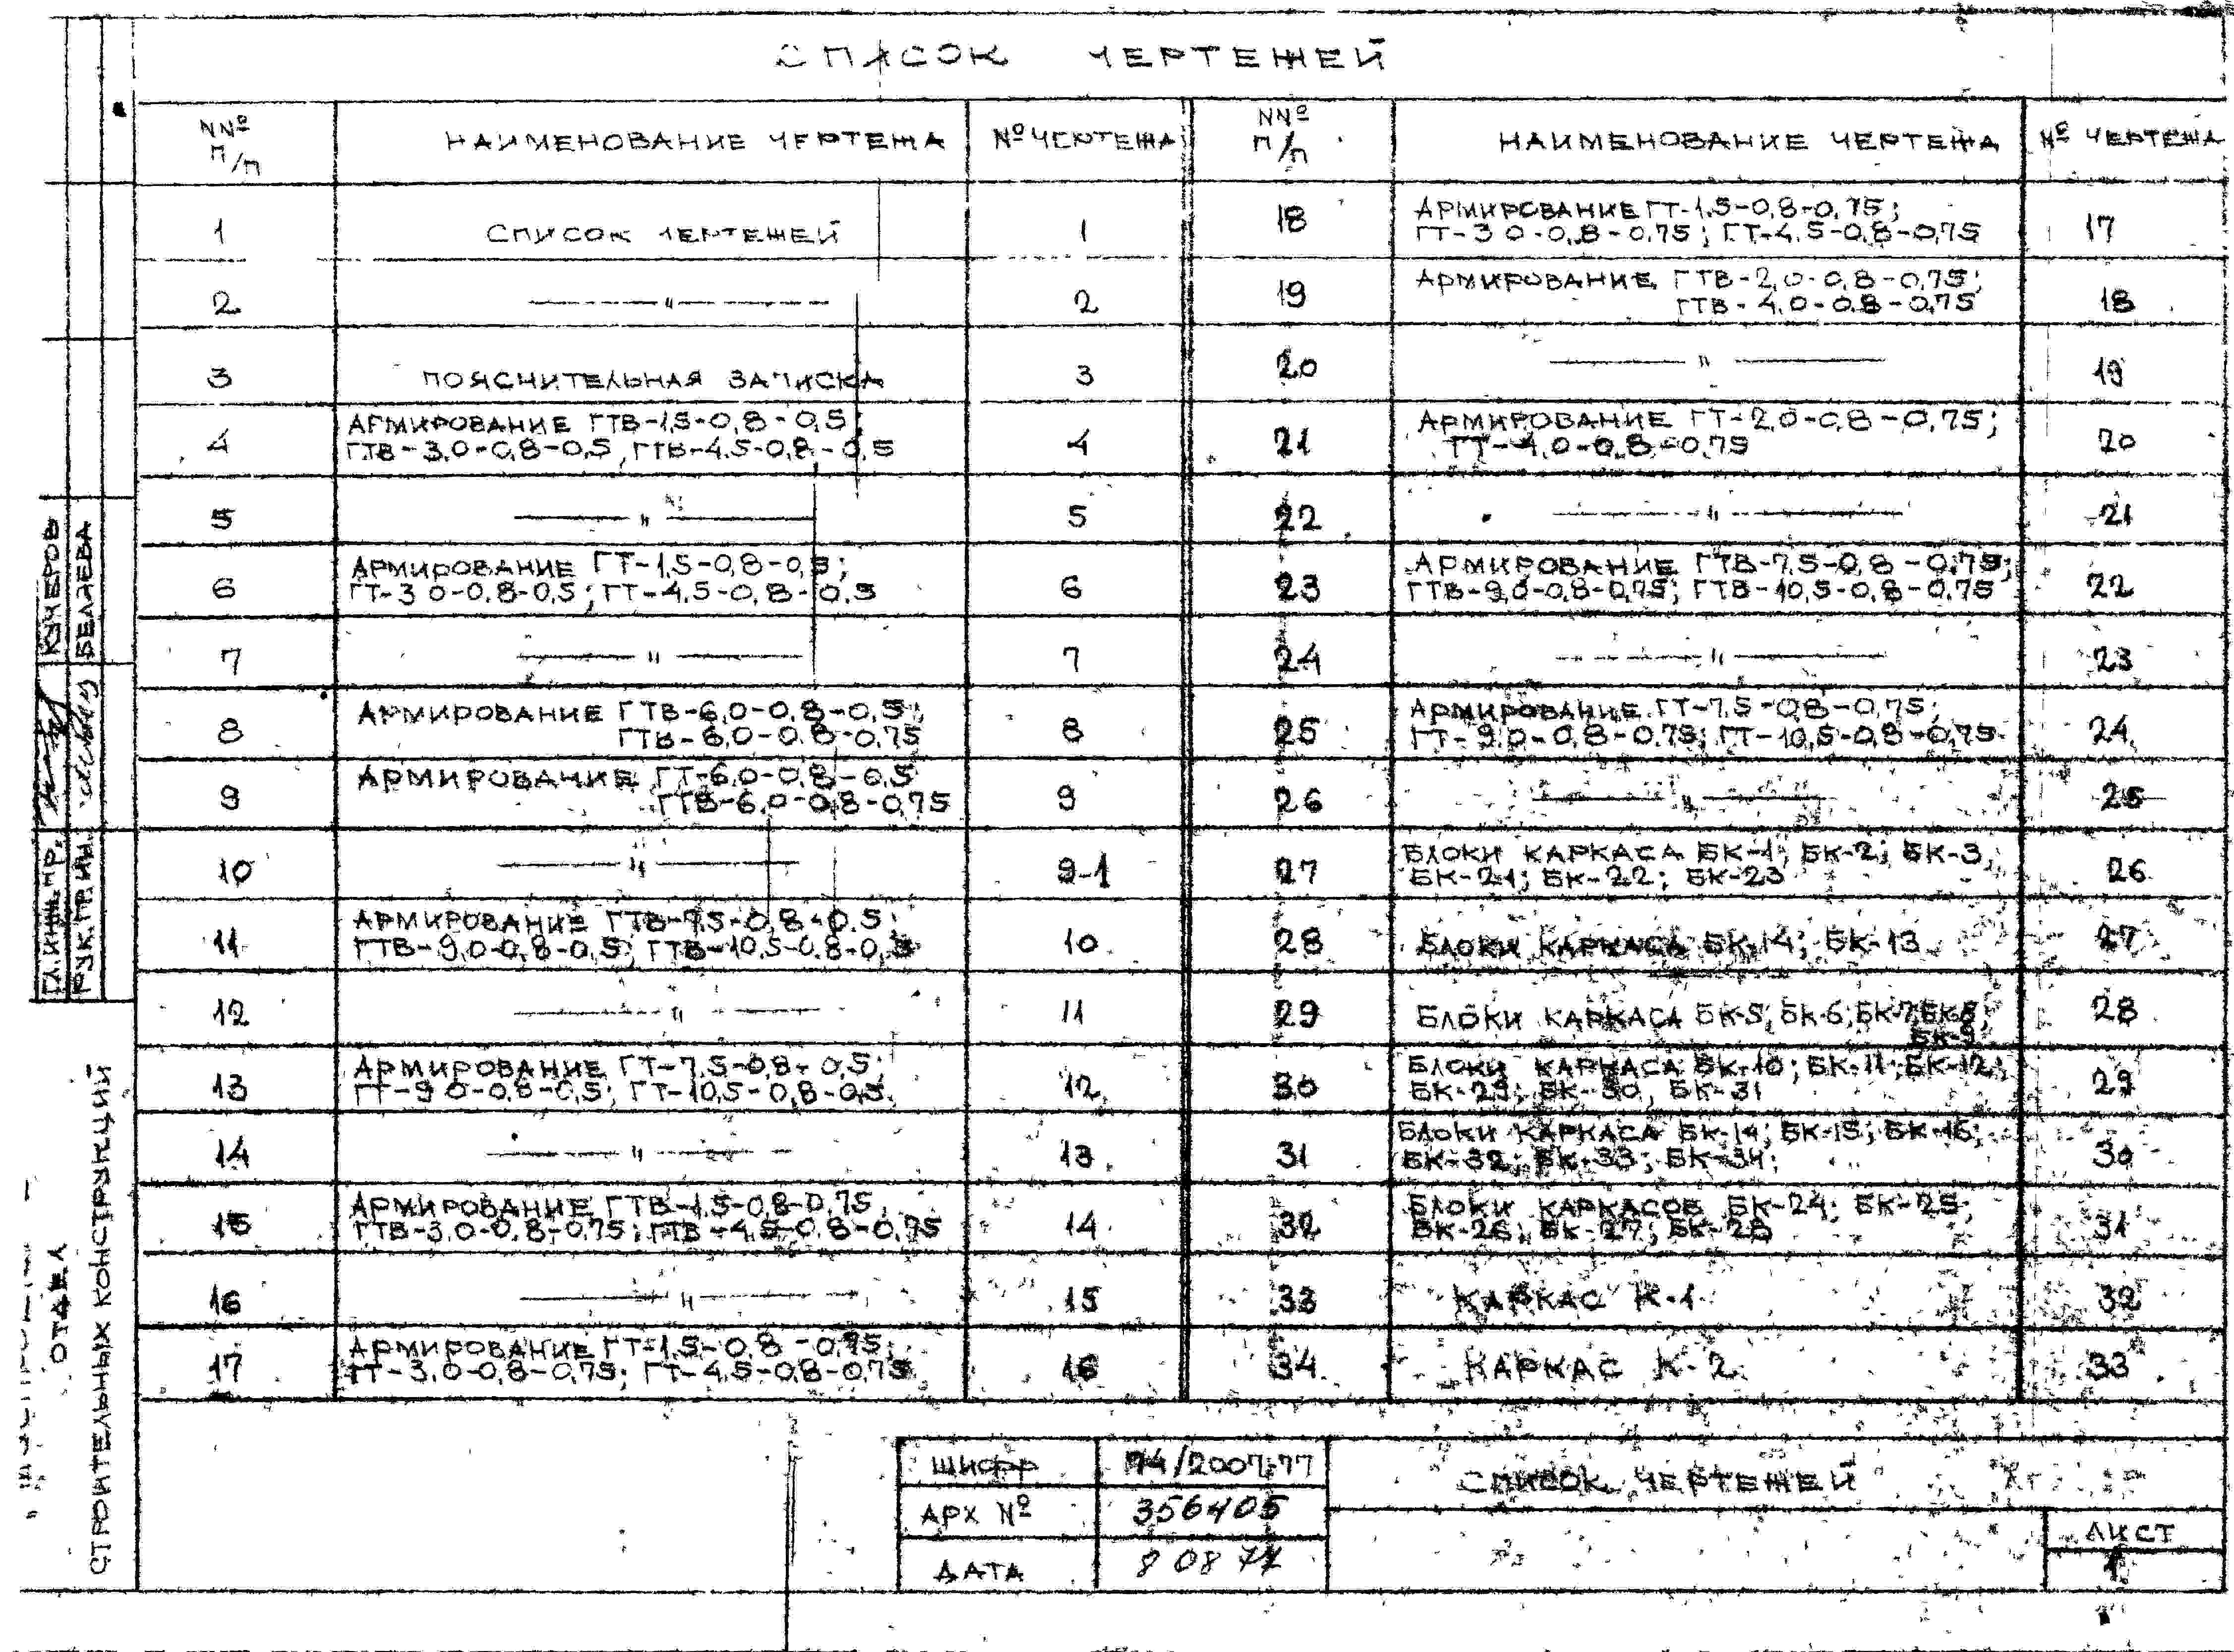 СПИСОК ЧЕРТЕЖЕЙ
NNº п/п НАИМЕНОВАНИЕ ЧЕРТЕЖА Nº ЧЕРТЕЖА NNº п/п НАИМЕНОВАНИЕ ЧЕРТЕЖА Nº ЧЕРТЕЖА
1 СПИСОК ЧЕРТЕЖЕЙ 1
2 —〃— 2
3 ПОЯСНИТЕЛЬНАЯ ЗАПИСКА 3
4 АРМИРОВАНИЕ ГТВ-1,5-0,8-0,5;
ГТВ-3,0-0,8-0,5, ГТВ-4,5-0,8-0,5 4
5 —〃— 5
6 АРМИРОВАНИЕ ГТ-1,5-0,8-0,5;
ГТ-3,0-0,8-0,5; ГТ-4,5-0,8-0,5 6
7 —〃— 7
8 АРМИРОВАНИЕ ГТВ-6,0-0,8-0,5;
ГТВ-6,0-0,8-0,75 8
9 АРМИРОВАНИЕ ГТ-6,0-0,8-0,5
ГТВ-6,0-0,8-0,75 9
10 —〃— 9-1
11 АРМИРОВАНИЕ ГТВ-7,5-0,8-0,5
ГТВ-9,0-0,8-0,5; ГТВ-10,5-0,8-0,5 10
12 —〃— 11
13 АРМИРОВАНИЕ ГТ-7,5-0,8-0,5;
ГТ-9,0-0,8-0,5; ГТ-10,5-0,8-0,5 12
14 —〃— 13
15 АРМИРОВАНИЕ ГТВ-1,5-0,8-0,75,
ГТВ-3,0-0,8-0,75; ГТВ-4,5-0,8-0,75 14
16 —〃— 15
17 АРМИРОВАНИЕ ГТ-1,5-0,8-0,75;
ГТ-3,0-0,8-0,75; ГТ-4,5-0,8-0,75 16
18 АРМИРОВАНИЕ ГТ-1,5-0,8-0,75;
ГТ-3,0-0,8-0,75; ГТ-4,5-0,8-0,75 17
19 АРМИРОВАНИЕ ГТВ-2,0-0,8-0,75;
ГТВ-4,0-0,8-0,75 18
20 —〃— 19
21 АРМИРОВАНИЕ ГТ-2,0-0,8-0,75;
ГТ-4,0-0,8-0,75 20
22 —〃— 21
23 АРМИРОВАНИЕ ГТВ-7,5-0,8-0,75;
ГТВ-9,0-0,8-0,75; ГТВ-10,5-0,8-0,75 22
24 —〃— 23
25 АРМИРОВАНИЕ ГТ-7,5-0,8-0,75;
ГТ-9,0-0,8-0,75; ГТ-10,5-0,8-0,75 24
26 —〃— 25
27 БЛОКИ КАРКАСА БК-1; БК-2; БК-3,
БК-21; БК-22; БК-23 26
28 БЛОКИ КАРКАСА БК-14; БК-13 27
29 БЛОКИ КАРКАСА БК-5; БК-6; БК-7; БК-8;
БК-9 28
30 БЛОКИ КАРКАСА БК-10; БК-11; БК-12;
БК-29; БК-30, БК-31 29
31 БЛОКИ КАРКАСА БК-14; БК-15; БК-16;
БК-32; БК-33; БК-34; 30
32 БЛОКИ КАРКАСОВ БК-24; БК-25
БК-26; БК-27; БК-28 31
33 КАРКАС К-1 32
34 КАРКАС К-2 33
ШИФР 74/2007-77
АРХ Nº 356405
ДАТА 8 08 77
СПИСОК ЧЕРТЕЖЕЙ
ЛИСТ
1
ГЛ.ИНЖ.ПР. КУЧЕРОВ
РУК.ГР.ИН. БЕЛЯЕВА
ОТДЕЛ
СТРОИТЕЛЬНЫХ КОНСТРУКЦИЙ